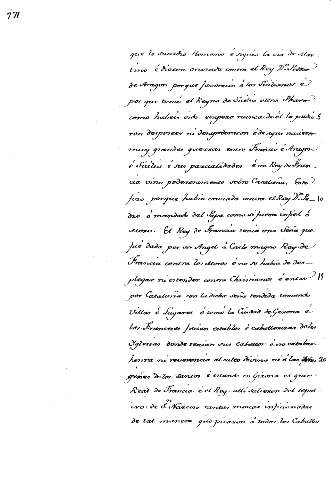 771
que lo sucedio Romano é siguio la via de Mar
tino é dieron cruzada contra el Rey Dn Pedro
de Aragon porque favorecia á los Sicilianos é
por que tomó el Reyno de Sicilia otros Moros
como habeis oido empero nunca de él la pudie 5
ron desposeer ni desapoderaron é de aqui nacieron
muy grandes guerras entre Francia é Aragon
é Sicilia é sus parcialidades é un Rey de Fran
cia vino poderosamente sobre Cataluña, Espe
cial porque habia cruzada contra el Rey Dn Pe- 10
dro á mandado del Papa como si fuera infiel á
Moro. El Rey de Francia tenia una seña que
fué dada por un Angel á Carlo magno Rey de
Francia contra los Moros é no se habia de des
plegar ni estender contra Christianos é entró 15
por Cataluña con la dicha seña tendida tomando
Villas é Lugares é tomó la Ciudad de Gerona é
los Franceses facian establos é caballerizas de las
Yglesias donde tenian sus caballos é no cataban
honra ni reverencia al culto divino ni á las reli 20
quias de los santos é estando en Girona el gran
Real de Francia é el Rey alli salieron del sepul
cro de Sn Narciso tantas moscas inficionadas
de tal manera que picaron á todos los Caballos